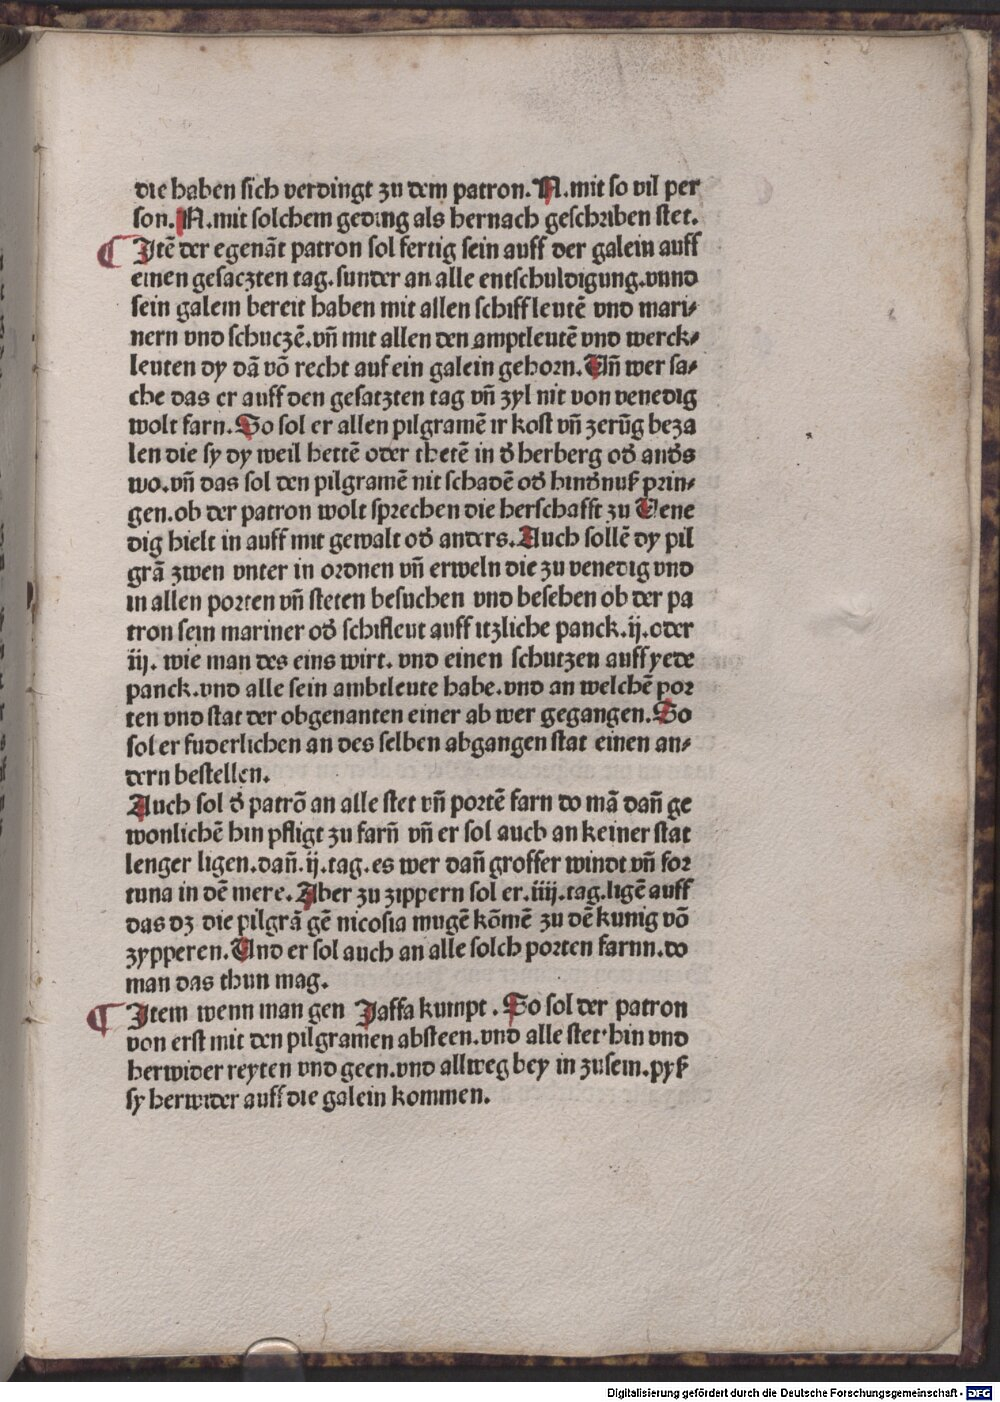 die haben sich verdingt zu dem patron. N. mit so vil per
son. N. mit solchem geding als hernach geschriben stet.
¶ Itē der egenāt patron sol fertig sein auff der galein auff
einen gesaczten tag. sunder an alle entschuldigung. vnnd
sein galein bereit haben mit allen schiffleutē vnd mari⸗
nern vnd schuczē. vn̄ mit allen den amptleutē vnd werck⸗
leuten dy dā vō recht auf ein galein gehorn. Vn̄ wer sa⸗
che das er auff den gesatzten tag vn̄ zyl nit von venedig
wolt farn. So sol er allen pilgramē ir kost vn̄ zerūg beza
len die sy dy weil hettē oder thetē in d̕ herberg od̕ and̕s
wo. vn̄ das sol den pilgramē nit schadē od̕ hind̕nuß prin⸗
gen. ob der patron wolt sprechen die herschafft zu Vene
dig hielt in auff mit gewalt od̕ anders. Auch sollē dy pil
grā zwen vnter in ordnen vn̄ erweln die zu venedig vnd
in allen porten vn̄ steten besuchen vnd besehen ob der pa
tron sein mariner od̕ schifleut auff itzliche panck. ij. oder
iij. wie man des eins wirt. vnd einen schutzen auff yede
panck. vnd alle sein ambtleute habe. vnd an welchē por
ten vnd stat der obgenanten einer ab wer gegangen. So
sol er fuderlichen an des selben abgangen stat einen an⸗
dern bestellen.
Auch sol d̕ patrō an alle stet vn̄ portē farn do mā dan̄ ge
wonlichē hin pfligt zu farn̄ vn̄ er sol auch an keiner stat
lenger ligen. dan̄. ij. tag. es wer dan̄ grosser windt vn̄ for
tuna in dē mere. Aber zu zippern sol er. iiij. tag. ligē auff
das dz die pilgrā gē nicosia mugē kōmē zu dē kunig vō
zypperen. Und er sol auch an alle solch porten farnn. do
man das thun mag.
¶ Item wenn man gen Jaffa kumpt. So sol der patron
von erst mit den pilgramen absteen. vnd alle stet hin vnd
herwider reyten vnd geen. vnd allweg bey in zusein. pyß
sy herwider auff die galein kommen.
Digitalisierung gefördert durch die Deutsche Forschungsgemeinschaft - DFG